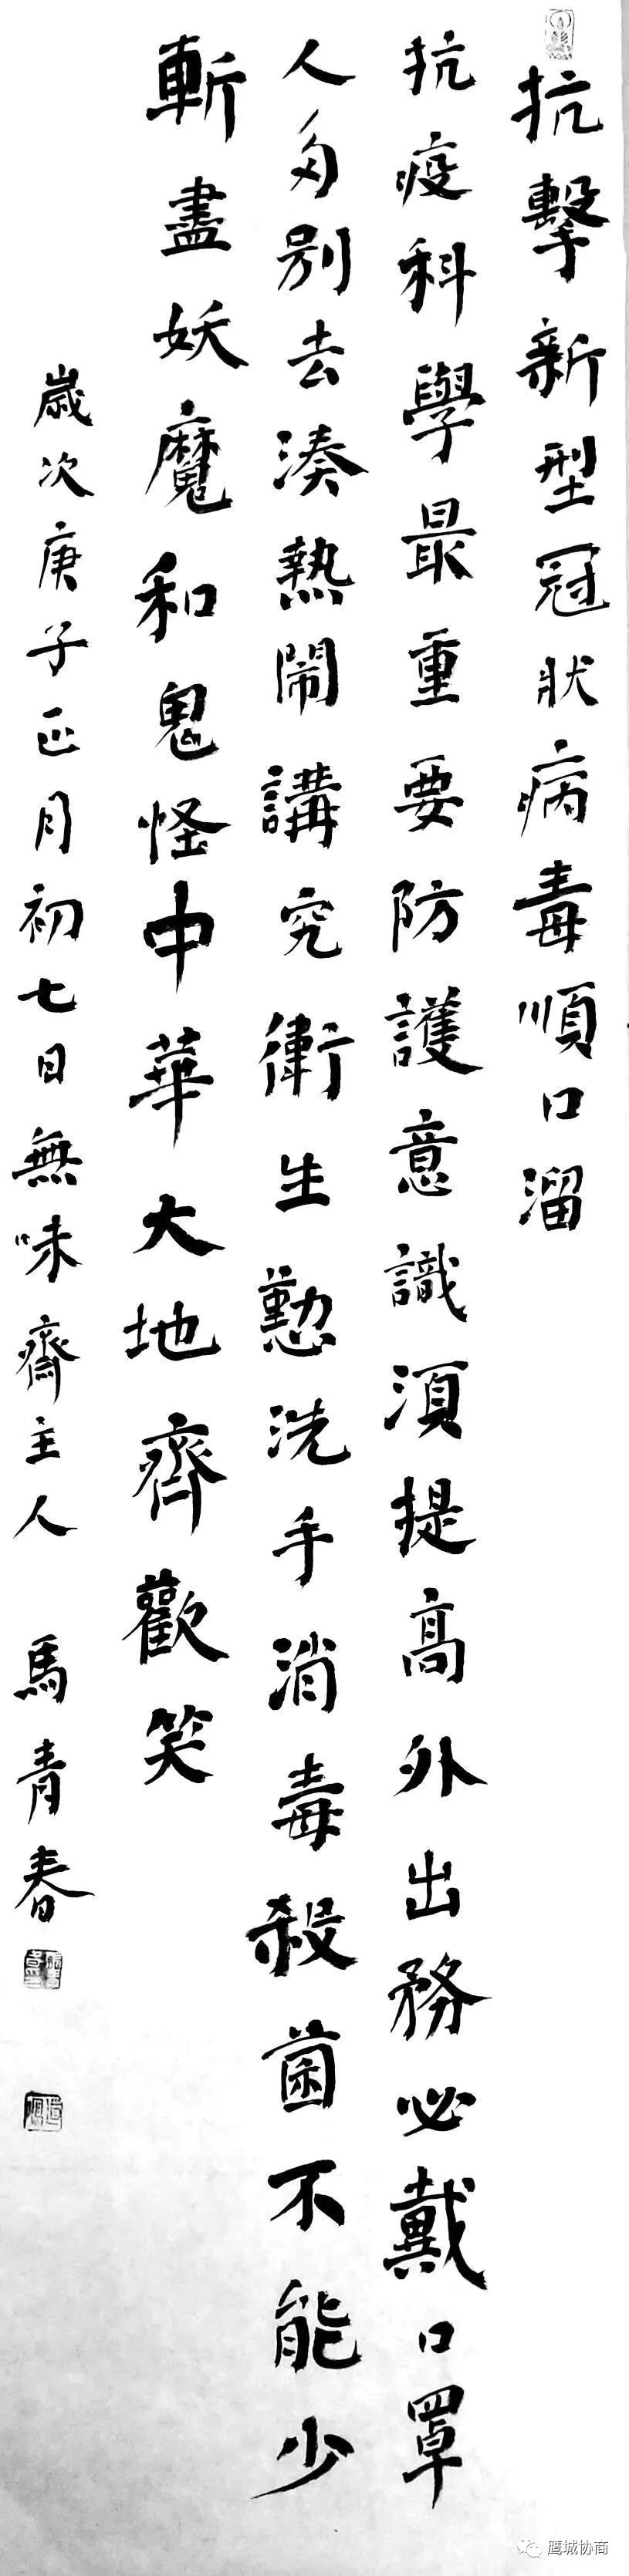 抗擊新型冠狀病毒順口溜
抗疫科學最重要防護意識須提高外出務必戴口罩
人多別去湊熱鬧講究衛生勤洗手消毒殺菌不能少
斬盡妖魔和鬼怪中華大地齊歡笑
歲次庚子正月初七日無味齋主人 馬青春
鹰城协商